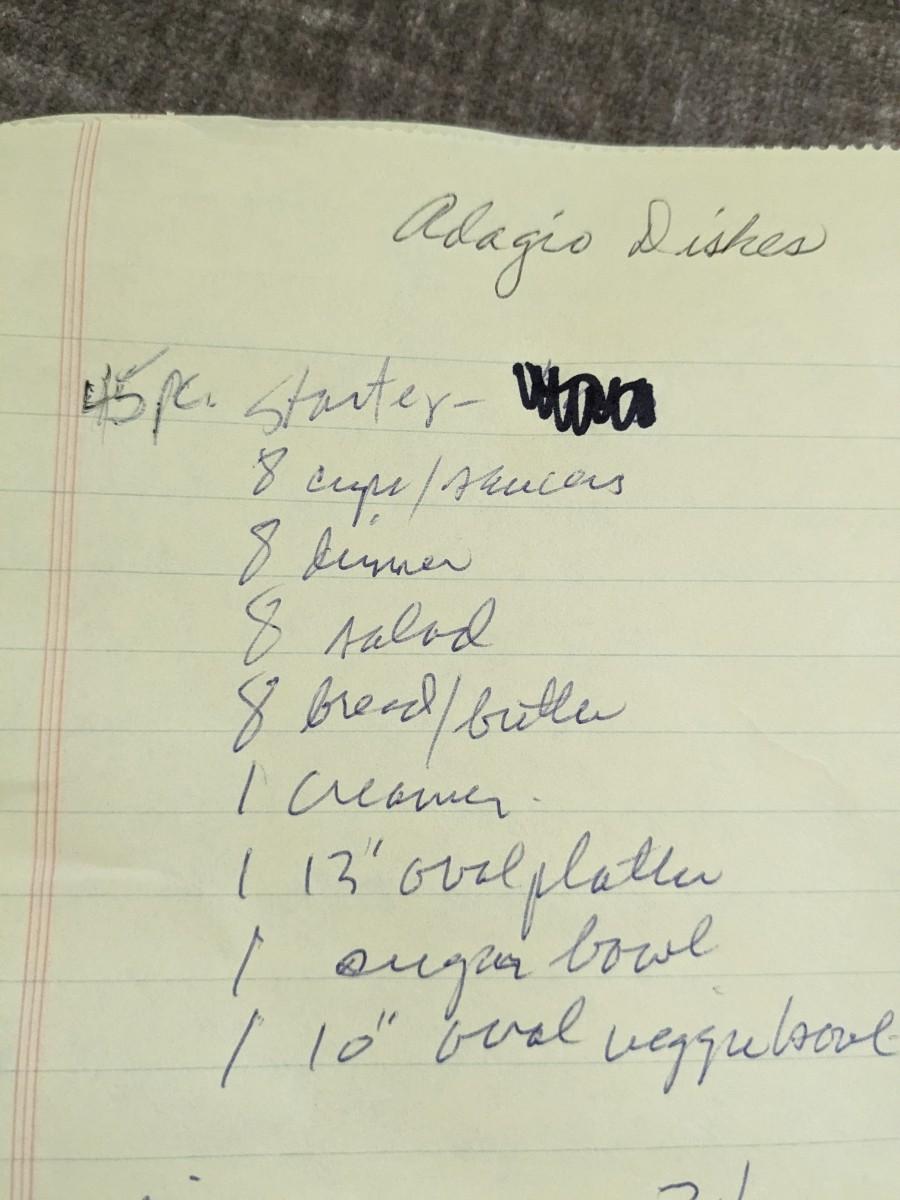 Adagio Dishes
45 pc. Starter -
8 cups/saucers
8 dinner
8 salad
8 bread/butter
1 Creamer.
1 13" oval platter
1 sugar bowl
1 10" oval veggie bowl